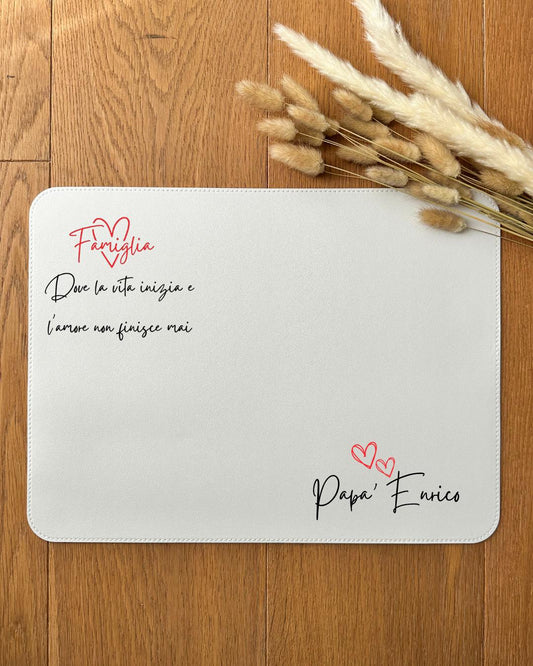 Famiglia
Dove la vita inizia e
l'amore non finisce mai
Papa' Enrico